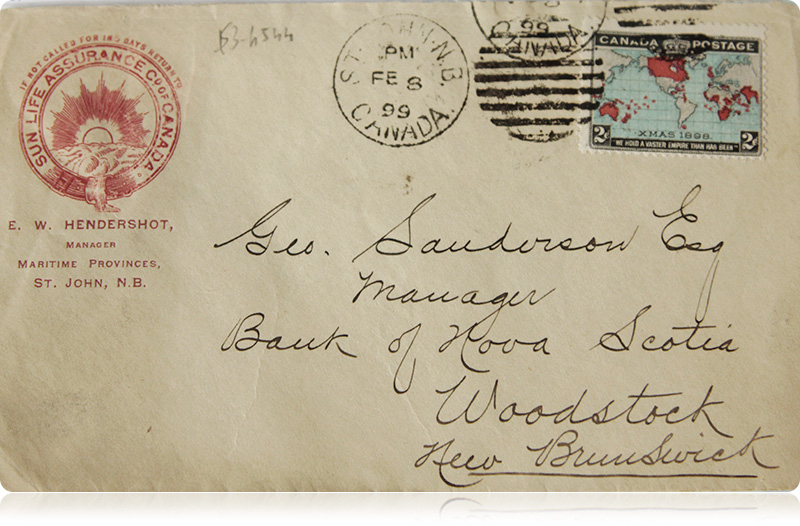 IF NOT CALLED FOR IN 5 DAYS RETURN TO
SUN LIFE ASSURANCE CO OF CANADA
E. W. HENDERSHOT,
MANAGER
MARITIME PROVINCES,
ST. JOHN, N.B.
ST. JOHN. N.B.
PM
FE 8
99
CANADA.
99
CANADA
CANADA POSTAGE
XMAS 1898
2c 2c
"WE HOLD A VASTER EMPIRE THAN HAS BEEN"
Geo. Sanderson Esq
Manager
Bank of Nova Scotia
Woodstock
New Brunswick